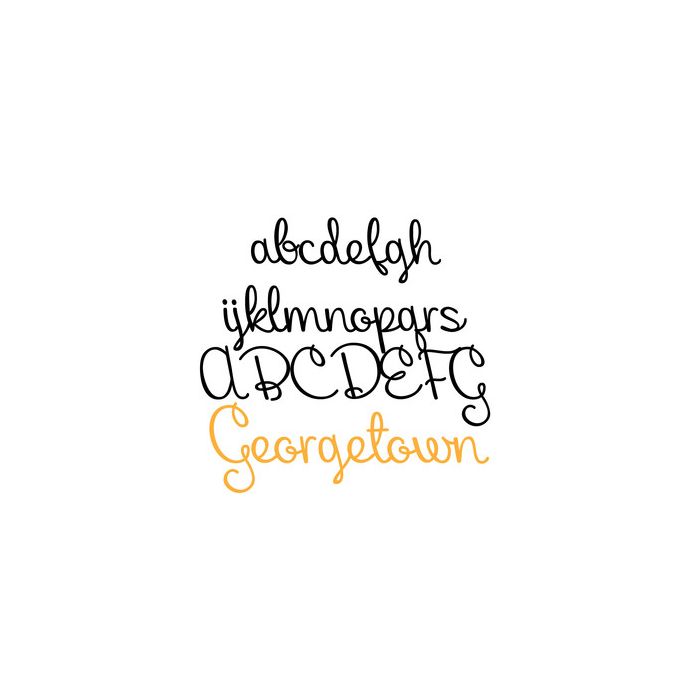 abcdefgh
ijklmnopqrs
ABCDEFG
Georgetown